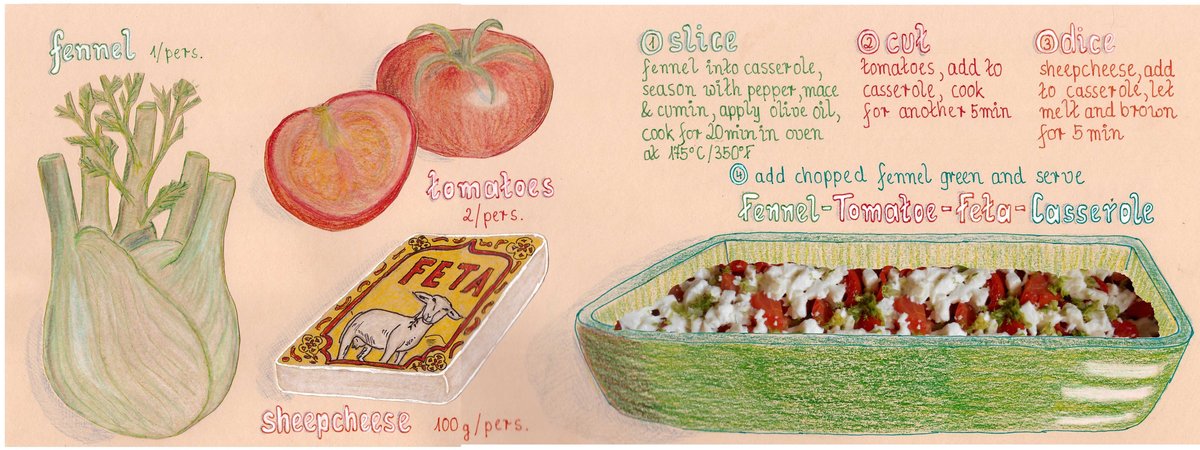 fennel 1/pers.
tomatoes
2/pers.
FETA
sheepcheese 100g/pers.
① slice
fennel into casserole,
season with pepper, mace
& cumin, apply olive oil,
cook for 20min in oven
at 175°C/350°F
② cut
tomatoes, add to
casserole, cook
for another 5min
③ dice
sheepcheese, add
to casserole, let
melt and brown
for 5 min
④ add chopped fennel green and serve
Fennel-Tomatoe-Feta-Casserole